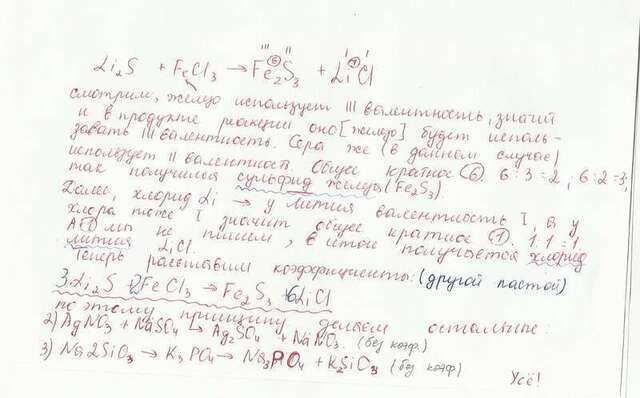 III II I I
Li₂S + FeCl₃ → Fe₂S₃ + LiCl
6 1
смотрим, железо использует III валентность, значит
и в продукте реакции оно [железо] будет исполь-
зовать III валентность. Сера же (в данном случае)
использует II валентность. Общее кратное 6. 6:3=2; 6:2=3;
так получился сульфид железа (Fe₂S₃).
Далее, хлорид Li → у лития валентность I, а у
хлора тоже I значит общее кратное 1. 1:1=1.
А 1 мы не пишем, в итоге получается хлорид
лития LiCl.
Теперь расставим коэффициенты: (другой пастой)
3Li₂S 2FeCl₃ → Fe₂S₃ 6LiCl
по этому принципу делаем остальные:
2) AgNO₃ + NaSO₄ → Ag₂SO₄ + NaNO₃. (без коэф.)
3) Na2SiO₃ → K₃PO₄ → Na₃PO₄ + K₂SiO₃ (без коэф)
Усё!